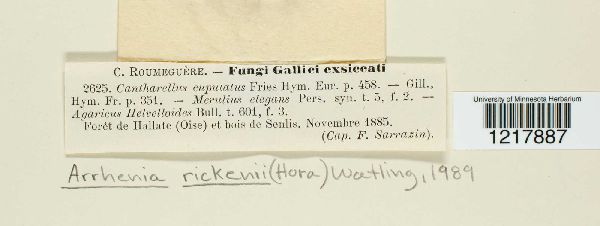 C. ROUMEGUÈRE. — Fungi Gallici exsiccati
2625. Cantharellus cupulatus Fries Hym. Eur. p. 458. — Gill.,
Hym. Fr. p. 351. — Merulius elegans Pers. syn. t. 5, f. 2. —
Agaricus Helvelloides Bull. t. 601, f. 3.
Forêt de Hallate (Oise) et bois de Senlis. Novembre 1885.
(Cap. F. Sarrazin).
University of Minnesota Herbarium
1217887
Arrhenia rickenii (Hora) Watling, 1989